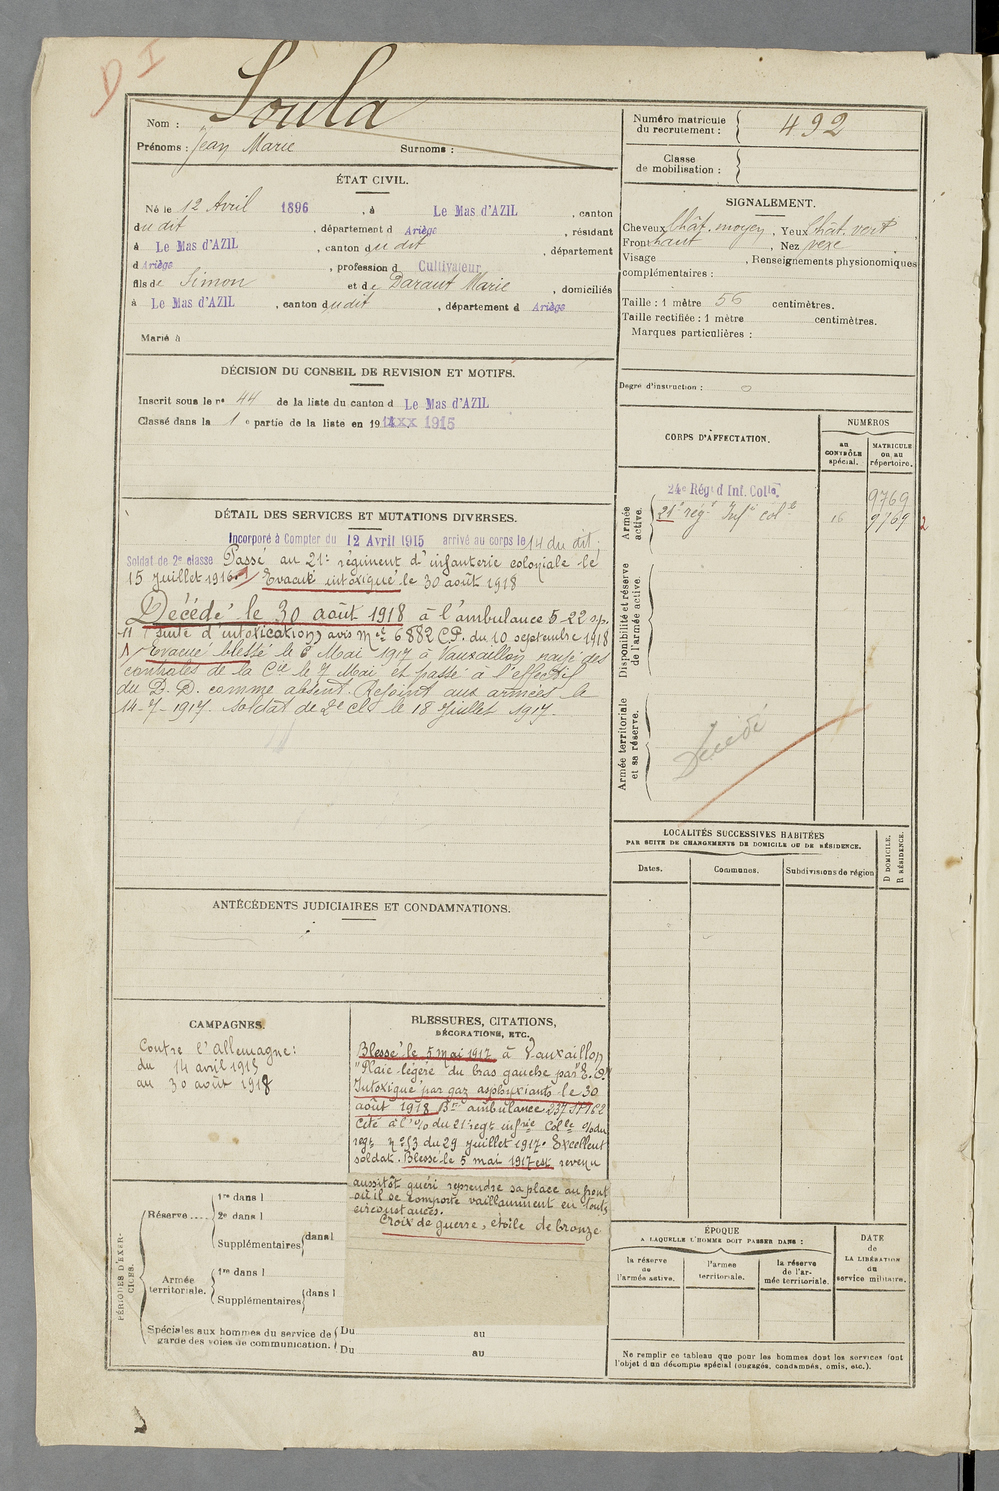 D I
Nom : Soula
Prénoms : Jean Marie Surnoms :
Numéro matricule du recrutement : 492
Classe de mobilisation :
ÉTAT CIVIL.
Né le 12 Avril 1896 , à Le Mas d'AZIL , canton
du dit , département d Ariège , résidant
à Le Mas d'AZIL , canton du dit , département
d Ariège , profession d Cultivateur
fils de Simon et de Daraut Marie , domiciliés
à Le Mas d'AZIL , canton dudit , département d Ariège
Marié à
SIGNALEMENT.
Cheveux chât. moyen , Yeux chât. vert
Front haut , Nez vexe
Visage , Renseignements physionomiques
complémentaires :
Taille : 1 mètre 56 centimètres.
Taille rectifiée : 1 mètre centimètres.
Marques particulières :
Degré d'instruction : 0
DÉCISION DU CONSEIL DE REVISION ET MOTIFS.
Inscrit sous le n° 44 de la liste du canton d Le Mas d'AZIL
Classé dans la 1 e partie de la liste en 19 1915
DÉTAIL DES SERVICES ET MUTATIONS DIVERSES.
Incorporé à Compter du 12 Avril 1915 arrivé au corps le 14 du dit.
Soldat de 2e classe Passé au 21e régiment d'infanterie coloniale le
15 Juillet 1916. Evacué intoxiqué le 30 août 1918
Décédé le 30 août 1918 à l'ambulance 5-22 sp.
-11 (suite d'intoxication) avis Mel 6882 C.P. du 10 septembre 1918
Evacué blessé le 6 Mai 1917 à Vauxaillon rayé des
contrôles de la Cie le 7 Mai et passé à l'effectif
du D. D. comme absent. Rejoint aux armées le
14-7-1917. Soldat de 2e cl. le 18 Juillet 1917.
CORPS D'AFFECTATION.
NUMÉROS
au CONTRÔLE spécial.
MATRICULE ou au répertoire.
Armée active.
24e Rég d Inf. Colle. 9769
21e rég.t Inf.ie col.le 16 9769 2
Disponibilité et réserve de l'armée active.
Armée territoriale et sa réserve.
Décédé
LOCALITÉS SUCCESSIVES HABITÉES
PAR SUITE DE CHANGEMENTS DE DOMICILE OU DE RÉSIDENCE.
Dates. Communes. Subdivisions de région
D DOMICILE. R RÉSIDENCE.
ANTÉCÉDENTS JUDICIAIRES ET CONDAMNATIONS.
CAMPAGNES.
Contre l'Allemagne :
du 14 avril 1915
au 30 août 1918
BLESSURES, CITATIONS,
DÉCORATIONS, ETC.
Blessé le 5 mai 1917 à Vauxaillon
"Plaie légère du bras gauche par E. O"
Intoxiqué par gaz asphyxiants le 30
août 1918 Bn ambulance
Cité à l'o/ du 21 regt infrie Colle o/ du
regt n° 53 du 29 Juillet 1917. Excellent
soldat. Blessé le 5 mai 1917 est revenu
aussitôt guéri reprendre sa place au front
où il se comporte vaillamment en toute
circonstances.
Croix de guerre, étoile de bronze
PÉRIODES D'EXERCICES.
Réserve....
1re dans l
2e dans l
Supplémentaires dans l
Armée territoriale.
1re dans l
Supplémentaires dans l
Spéciales aux hommes du service de garde des voies de communication.
Du au
Du au
ÉPOQUE
A LAQUELLE L'HOMME DOIT PASSER DANS :
la réserve de l'armée active.
l'armée territoriale.
la réserve de l'armée territoriale.
DATE de LA LIBÉRATION du service militaire.
Ne remplir ce tableau que pour les hommes dont les services font
l'objet d'un décompte spécial (engagés, condamnés, omis, etc.).